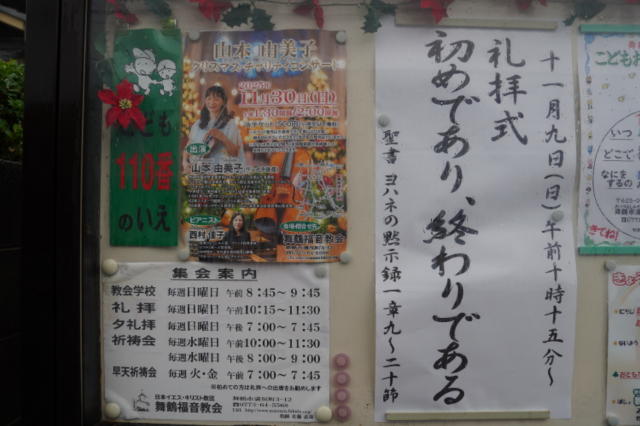 こども
110番
のいえ
山本 由美子
クリスマス・チャリティコンサート
2025年
11月30日(日)
出演
山本 由美子
ピアニスト
西村 佳子
舞鶴福音教会
集会案内
教会学校 毎週日曜日 午前 8:45～9:45
礼拝 毎週日曜日 午前10:15～11:30
夕礼拝 毎週日曜日 午後 7:00～7:45
祈祷会 毎週水曜日 午前10:00～11:30
毎週水曜日 午後 8:00～9:00
早天祈祷会 毎週火・金 午前 7:00～7:45
※初めての方は礼拝への出席をお勧めします
日本イエス・キリスト教団
舞鶴福音教会
十一月九日(日)午前十時十五分～
礼拝式
初めであり、終わりである
聖書 ヨハネの黙示録一章九～二十節
こどもお
いつ
どこで
なにを
するの
きてね!